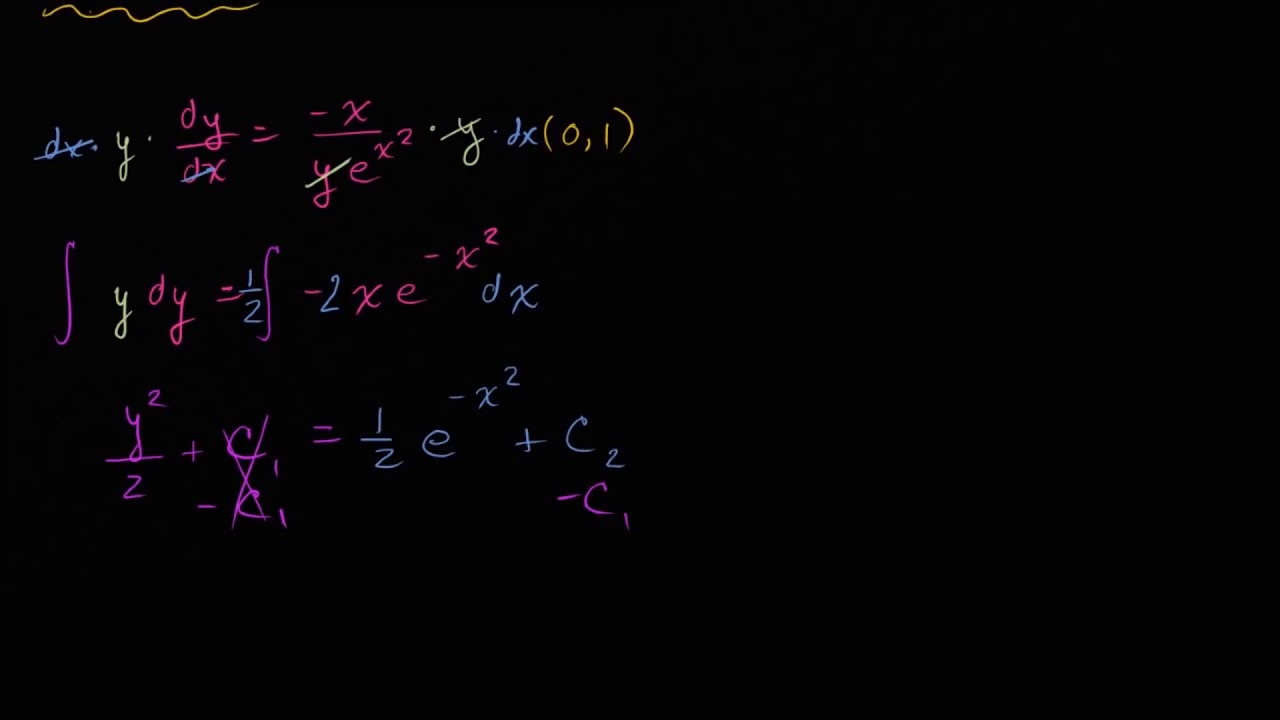 dx · y · dy/dx = -x/(y e^{x^2}) · y · dx (0,1)
∫ y dy = 1/2 ∫ -2x e^{-x^2} dx
y^2/2 + C_1 = 1/2 e^{-x^2} + C_2
- C_1 - C_1